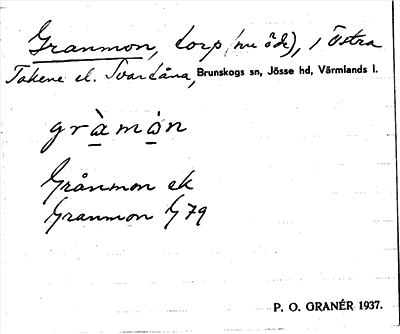 Granmon, torp (nu öde), i Östra
Takene el. Svartåna, Brunskogs sn, Jösse hd, Värmlands l.
gràmòn
Grånmon ek
Granmon G79
P. O. GRANÉR 1937.